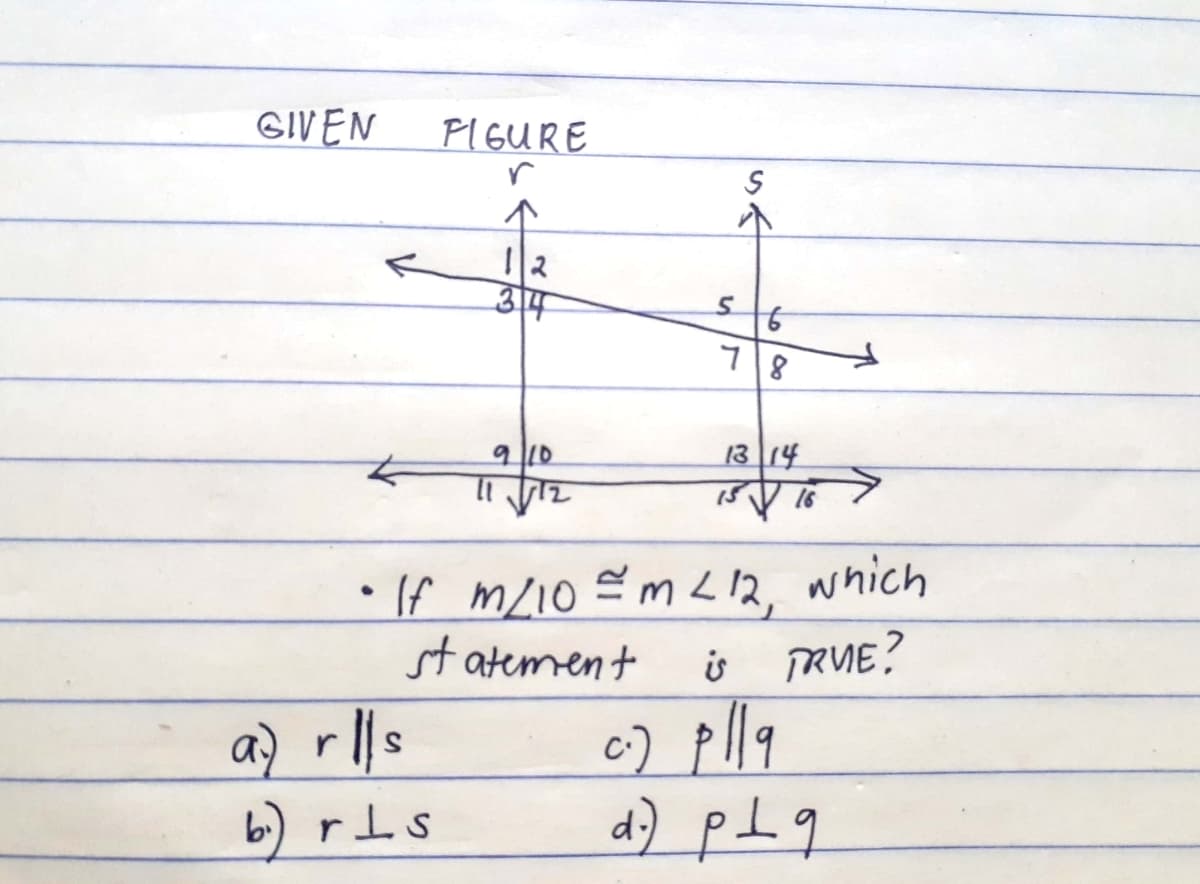 GIVEN FIGURE
r s
1 2
3 4 5 6
7 8
9 10 13 14
11 12 15 16
• If m∠10 ≅ m<12, which
statement is TRUE?
a.) r || s c.) p || q
b.) r ⊥ s d.) p ⊥ q